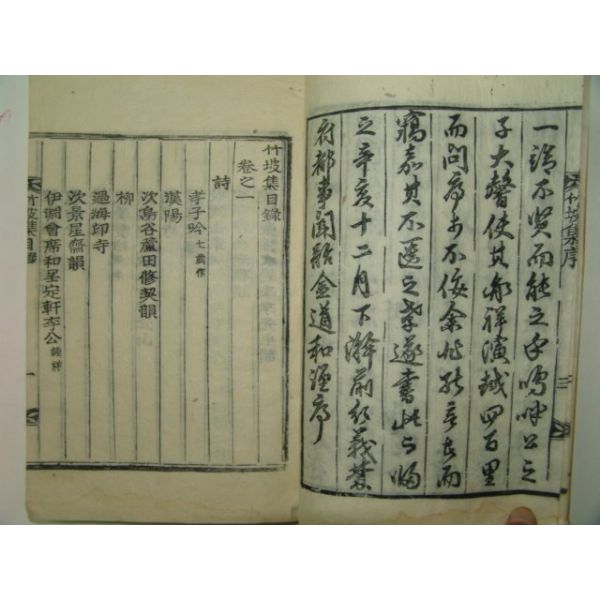 一諾不賢而能之乎嗚呼公之
子大馨使其彔祥演鉞四百里
而問序安不佞余非能言者而
竊嘉其不匱之孝遂書此以歸
之辛亥十二月下澣前行義禁
府都事聞韶金道和謹序
竹坡集序
三
竹坡集目錄
卷之一
詩
孝子吟 七歲作
漢陽
次島谷蘆田修契韻
柳
過海印寺
次景星齋韻
伊澗會席和呈定軒李公 鍾祥
竹坡集目錄
一